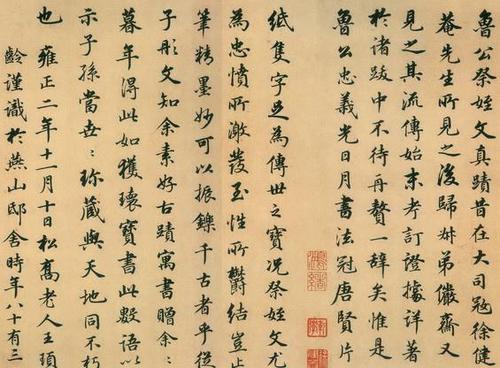 魯公祭姪文真蹟昔在大司寇徐健
菴先生所見之後歸叔弟儼齋又
見之其流傳始末考訂證據詳著
於諸跋中不待再贅一辭矣惟是
魯公忠義光日月書法冠唐賢片
紙隻字足為傳世之寶況祭姪文尤
為忠憤所激發至性所鬱結豈止
筆精墨妙可以振鑠千古者乎從
子彤文知余素好古蹟寓書贈余〻
暮年得此如獲瓌寶書此數語以
示子孫當世〻珍藏與天地同不朽
也 雍正二年十一月十日松喬老人王頊
齡謹識於燕山邸舍時年八十有三